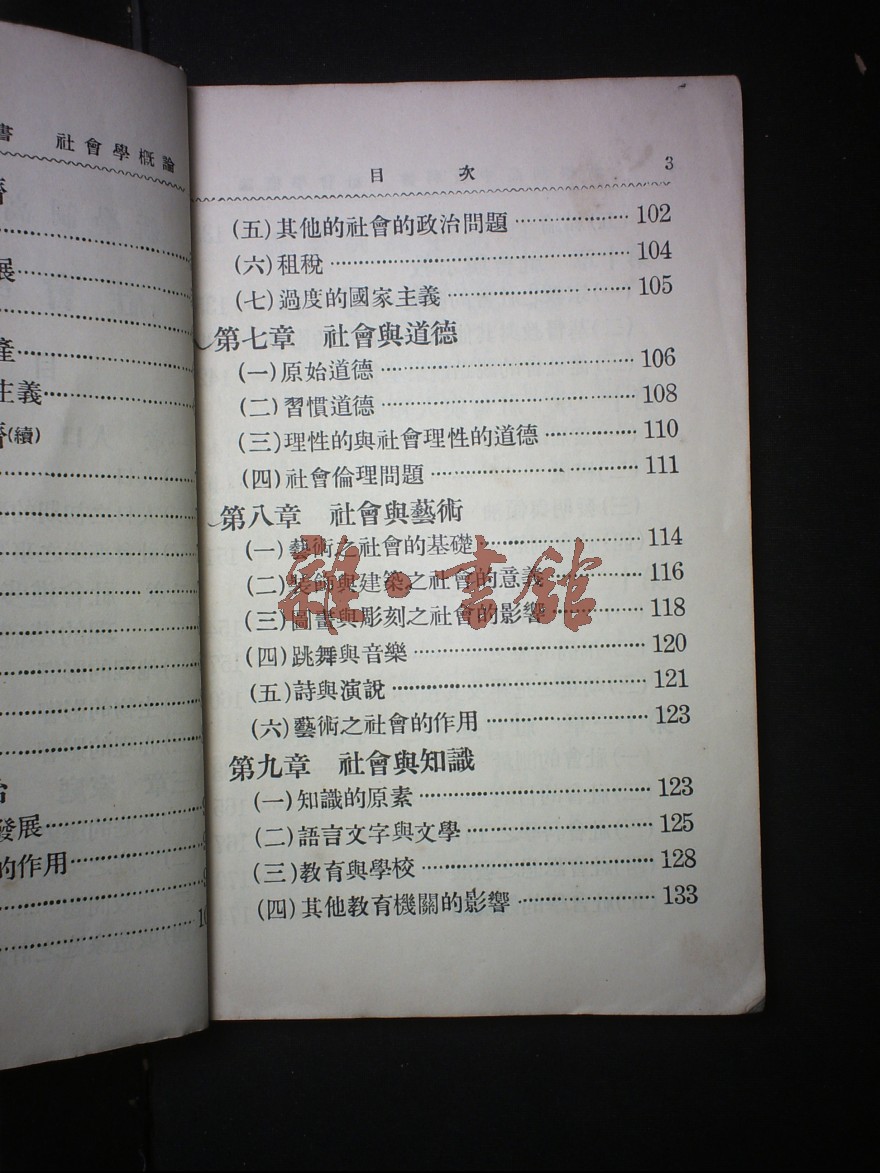 書 社會學概論
展
產
主義
濟(續)
治
發展
的作用
目次 3
(五)其他的社會的政治問題 102
(六)租稅 104
(七)過度的國家主義 105
第七章 社會與道德
(一)原始道德 106
(二)習慣道德 108
(三)理性的與社會理性的道德 110
(四)社會倫理問題 111
第八章 社會與藝術
(一)藝術之社會的基礎 114
(二)裝飾與建築之社會的意義 116
(三)圖畫與彫刻之社會的影響 118
(四)跳舞與音樂 120
(五)詩與演說 121
(六)藝術之社會的作用 123
第九章 社會與知識
(一)知識的原素 123
(二)語言文字與文學 125
(三)教育與學校 128
(四)其他教育機關的影響 133
雜·書館